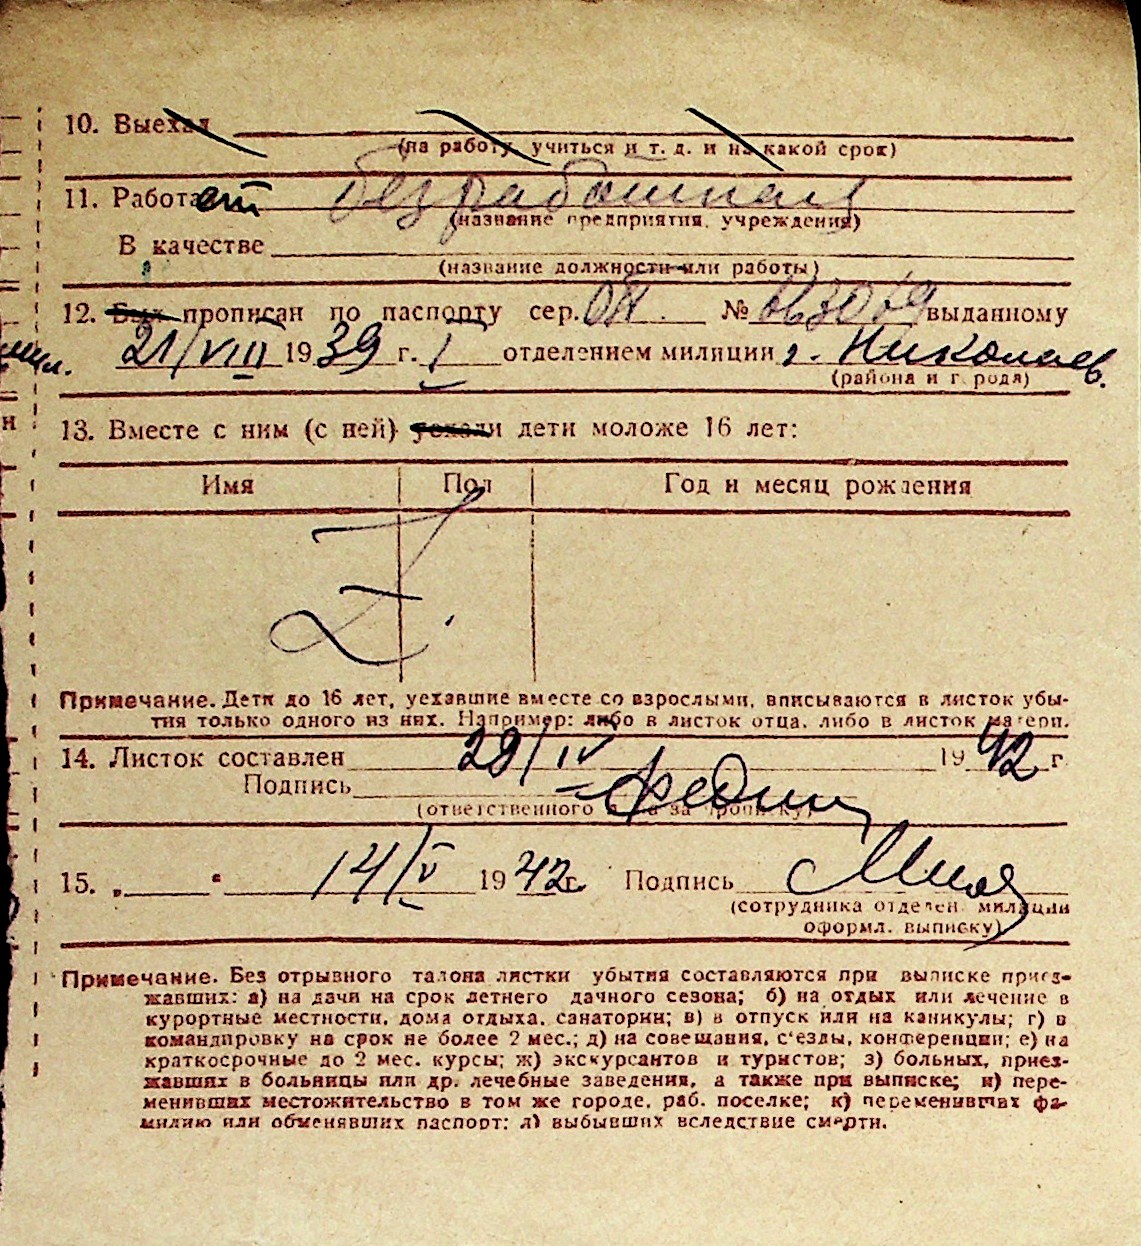 10. Выехал
(на работу, учиться и т. д. и на какой срок)
11. Работает безработная
(название предприятия, учреждения)
В качестве
(название должности или работы)
12. Был прописан по паспорту сер. № выданному
21/VIII 1939 г. I отделением милиции г. Николаев.
(района и города)
13. Вместе с ним (с ней) уехали дети моложе 16 лет:
Имя Пол Год и месяц рождения
Примечание. Дети до 16 лет, уехавшие вместе со взрослыми, вписываются в листок убы-
тия только одного из них. Например: либо в листок отца, либо в листок матери.
14. Листок составлен 29/IV 1942 г
Подпись
(ответственного лица за прописку)
15. „ “ 14/V 1942 г. Подпись
(сотрудника отделен. милиции
оформл. выписку)
Примечание. Без отрывного талона листки убытия составляются при выписке приез-
жавших: а) на дачи на срок летнего дачного сезона; б) на отдых или лечение в
курортные местности, дома отдыха, санатории; в) в отпуск или на каникулы; г) в
командировку на срок не более 2 мес.; д) на совещания, с'езды, конференции; е) на
краткосрочные до 2 мес. курсы; ж) экскурсантов и туристов; з) больных, приез-
жавших в больницы или др. лечебные заведения, а также при выписке; и) пере-
менивших местожительство в том же городе, раб. поселке; к) переменивших фа-
милию или обменявших паспорт; л) выбывших вследствие смерти.